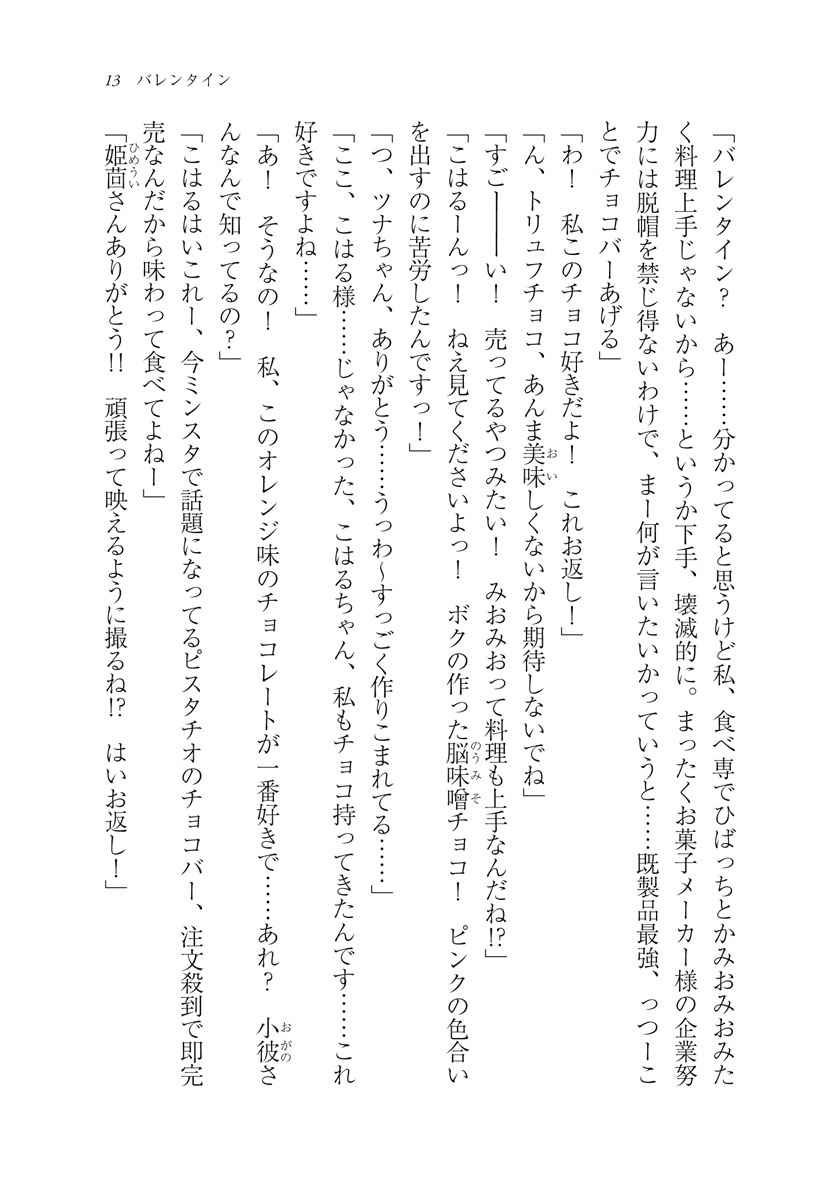 13　バレンタイン
「バレンタイン？　あー……分かってると思うけど私、食べ専でひばっちとかみおみおみた
く料理上手じゃないから……というか下手、壊滅的に。まったくお菓子メーカー様の企業努
力には脱帽を禁じ得ないわけで、まー何が言いたいかっていうと……既製品最強、っつーこ
とでチョコバーあげる」
「わ！　私このチョコ好きだよ！　これお返し！」
「ん、トリュフチョコ、あんま美味しくないから期待しないでね」
「すご――い！　売ってるやつみたい！　みおみおって料理も上手なんだね!?」
「こはるーんっ！　ねえ見てくださいよっ！　ボクの作った脳味噌チョコ！　ピンクの色合い
を出すのに苦労したんですっ！」
「つ、ツナちゃん、ありがとう……うっわ〜すっごく作りこまれてる……」
「ここ、こはる様……じゃなかった、こはるちゃん、私もチョコ持ってきたんです……これ
好きですよね……」
「あ！　そうなの！　私、このオレンジ味のチョコレートが一番好きで……あれ？　小彼さ
んなんで知ってるの？」
「こはるはいこれー、今ミンスタで話題になってるピスタチオのチョコバー、注文殺到で即完
売なんだから味わって食べてよねー」
「姫茴さんありがとう!!　頑張って映えるように撮るね!?　はいお返し！」